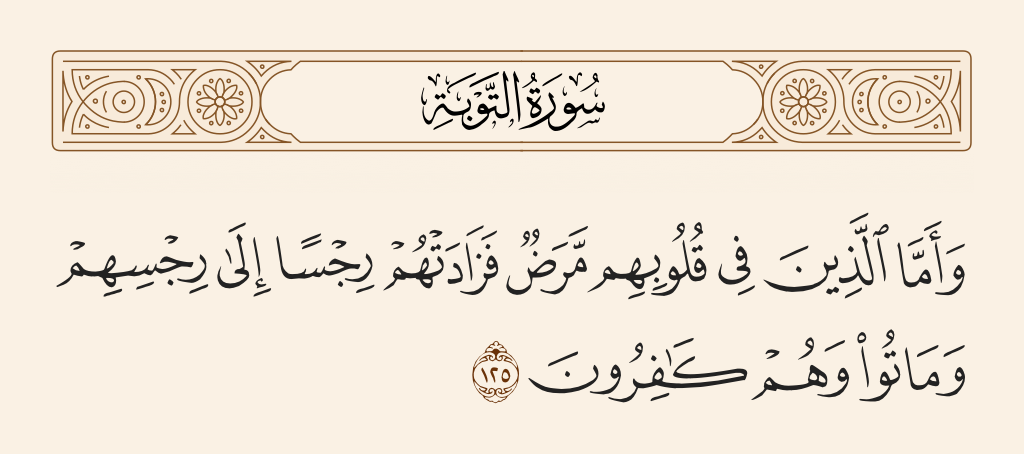 سُورَةُ التَّوۡبَةِ
وَأَمَّا ٱلَّذِينَ فِى قُلُوبِهِم مَّرَضٌ فَزَادَتۡهُمۡ رِجۡسًا إِلَىٰ رِجۡسِهِمۡ
وَمَاتُوا۟ وَهُمۡ كَـٰفِرُونَ ١٢٥